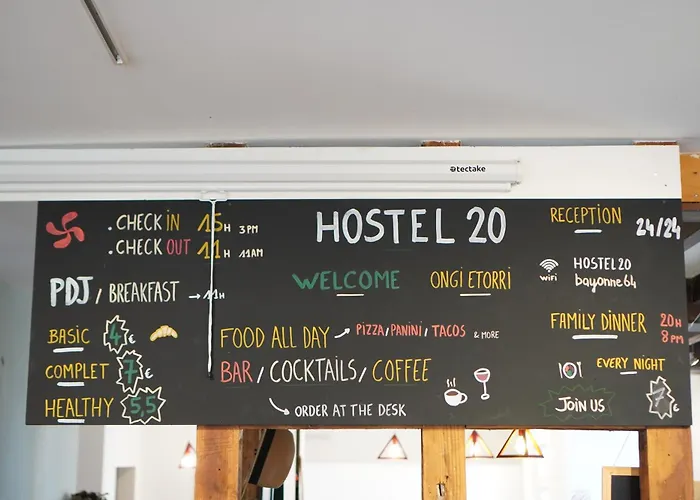 tectake
. CHECK IN 15H 3 PM
. CHECK OUT 11H 11AM
PDJ / BREAKFAST → 11H
BASIC 4€
COMPLET 7€
HEALTHY 5,5
HOSTEL 20
WELCOME ONGI ETORRI
FOOD ALL DAY → PIZZA/PANINI/TACOS & MORE
BAR / COCKTAILS / COFFEE
→ ORDER AT THE DESK
RECEPTION 24/24
wifi HOSTEL20
bayonne64
FAMILY DINNER 20H
8 PM
EVERY NIGHT
JOIN US 7€